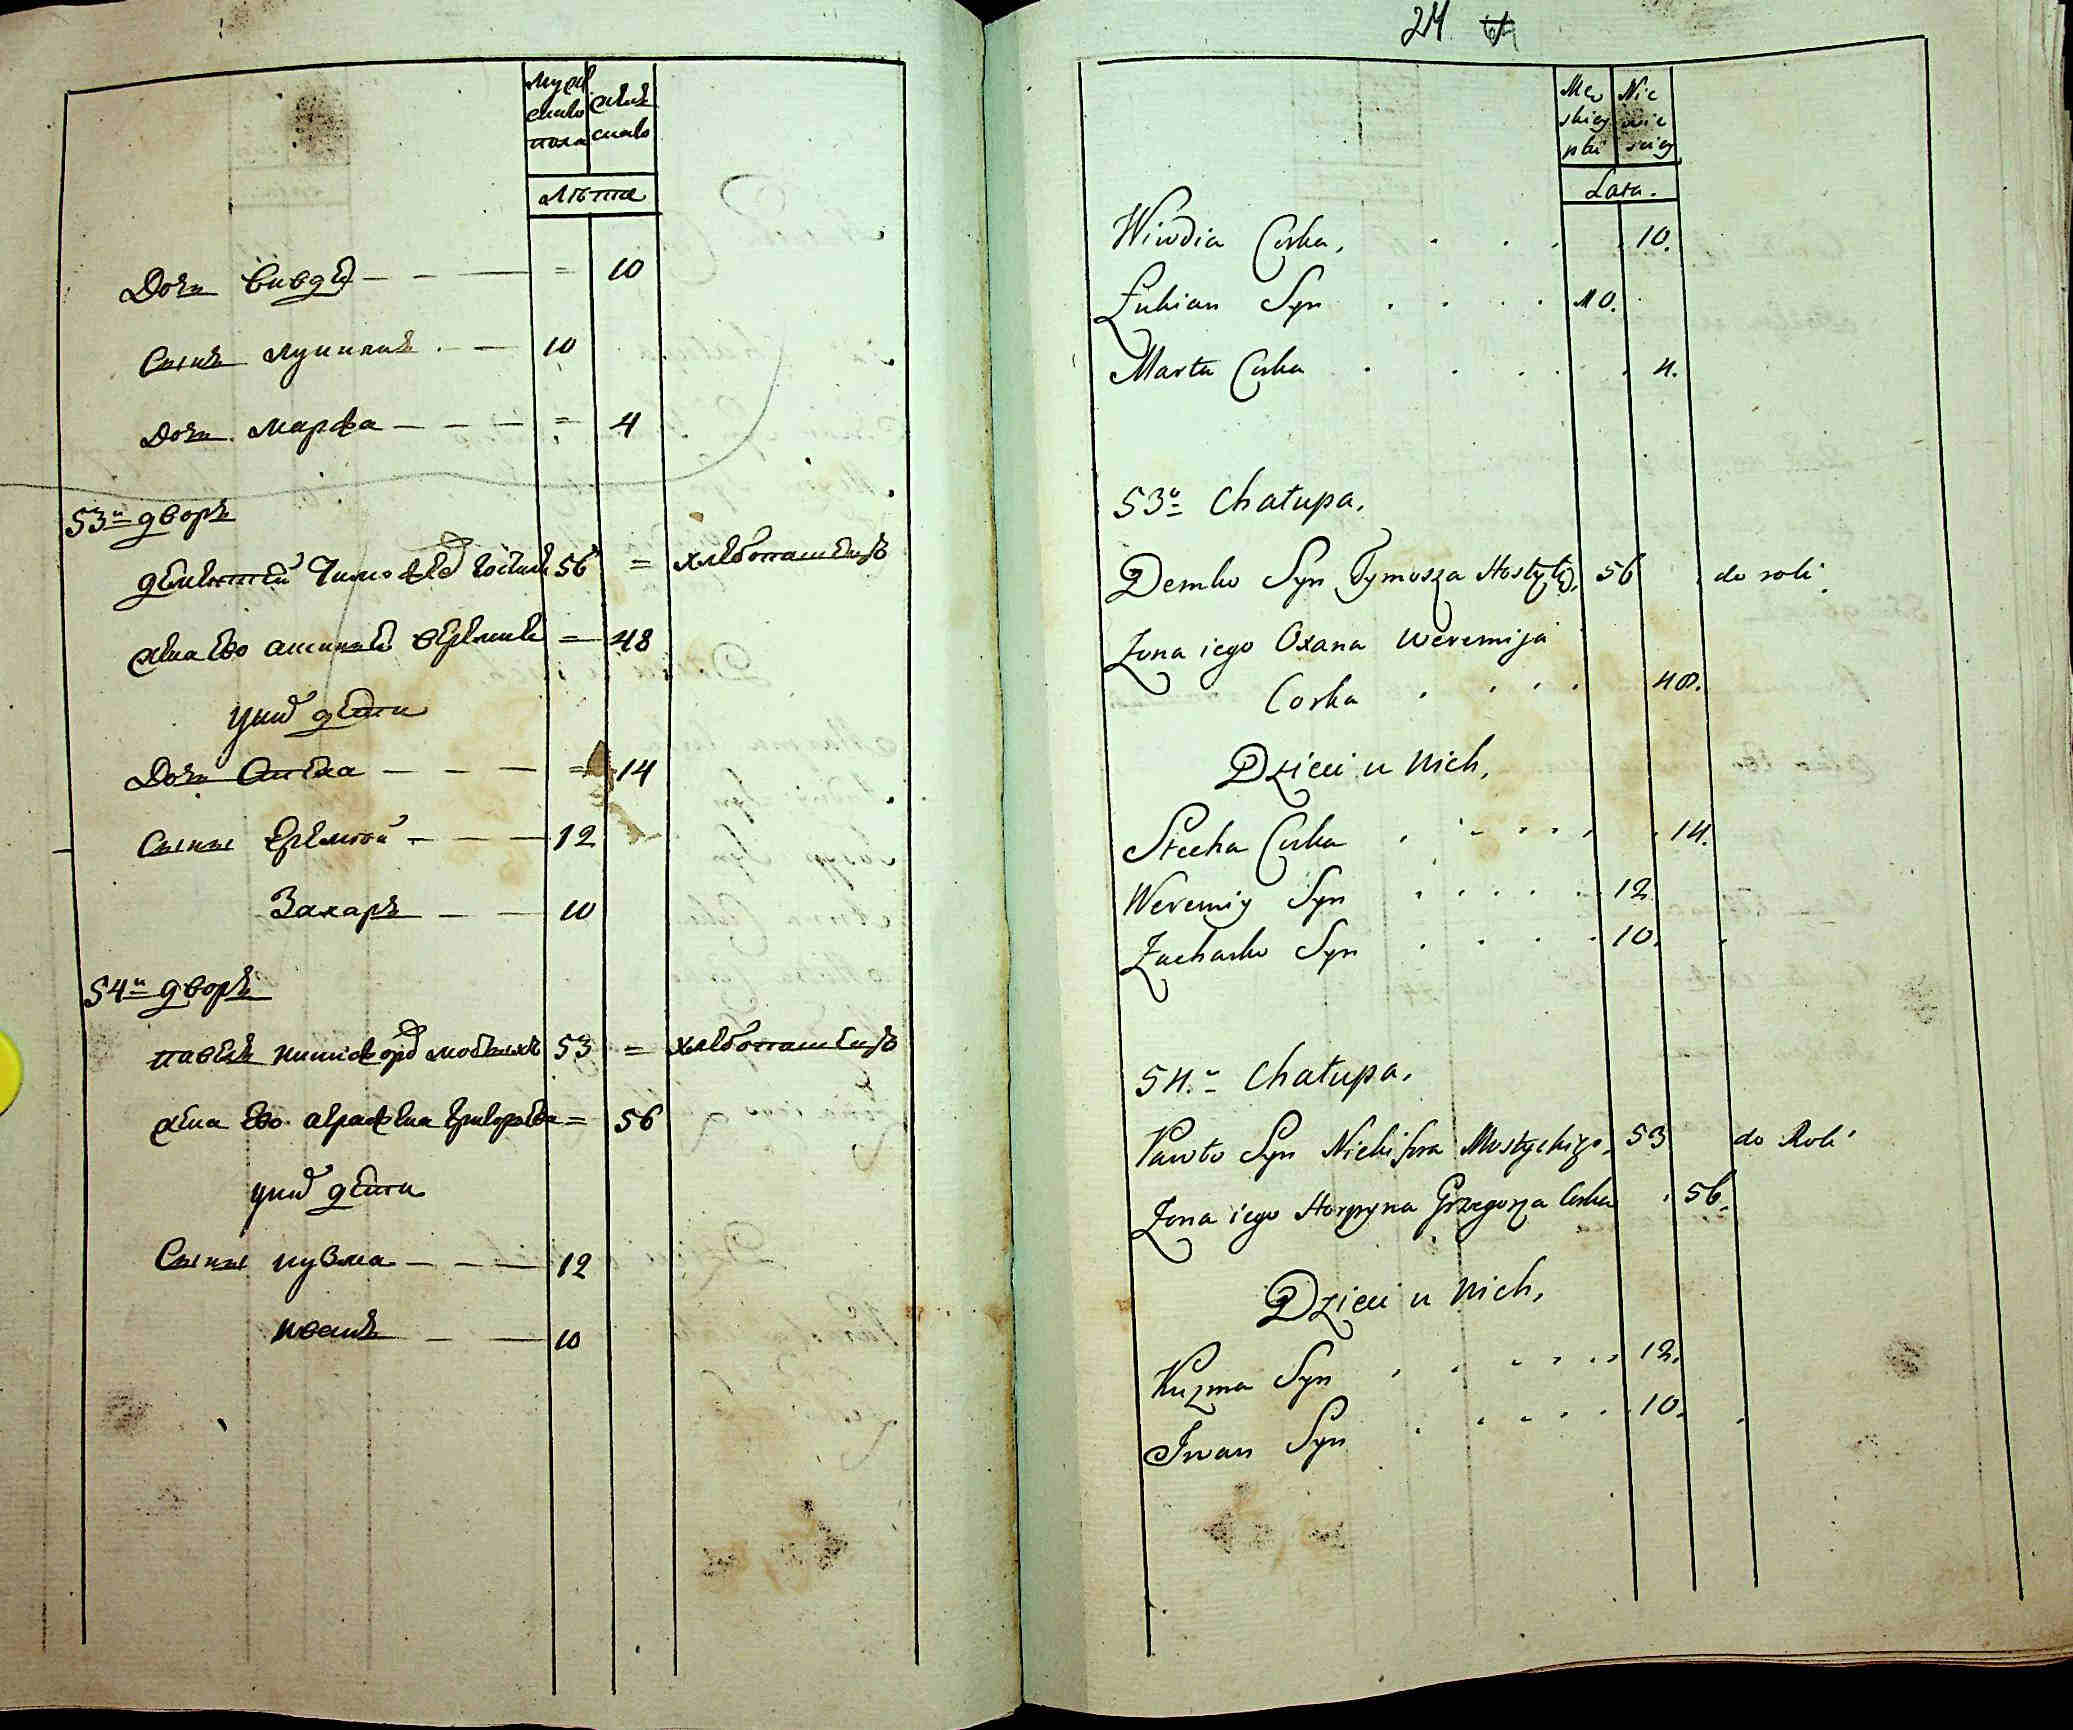 муж
скаго
пола
женъ
скаго
лѣта
Дочь Вивдѣ 10
Сынъ лукиянъ 10
Дочь Марфа 4
53й дворъ
дементей тимофеевъ 56 = хлебопашецъ
жена ево = 48
у них дети
Дочь = 14
Сыны Еремѣй 12
Захаръ 10
54й дворъ
павелъ никифоровъ 53 = хлебопашецъ
жена ево аграфена григорьева = 56
у них дети
Сыны кузма 12
иванъ 10
24
Męz
skiey
płci
Nie
wie
sciey
Lata.
Wiwdia Corka, 10.
Łukian Syn 10.
Marta Corka 4.
53a Chałupa.
Demko Syn Tymosza 56 do roli
Zona iego Oxana Weremija
Corka 48.
Dzieci u Nich,
Stecha Corka 14.
Weremiy Syn 12
Zacharko Syn 10.
54.a Chałupa.
Pawło Syn Nichifora Mostyckiego 53 do Roli
Zona iego Horpyna Grzegorza Corka 56.
Dzieci u Nich,
Kuzma Syn 12.
Iwan Syn 10.